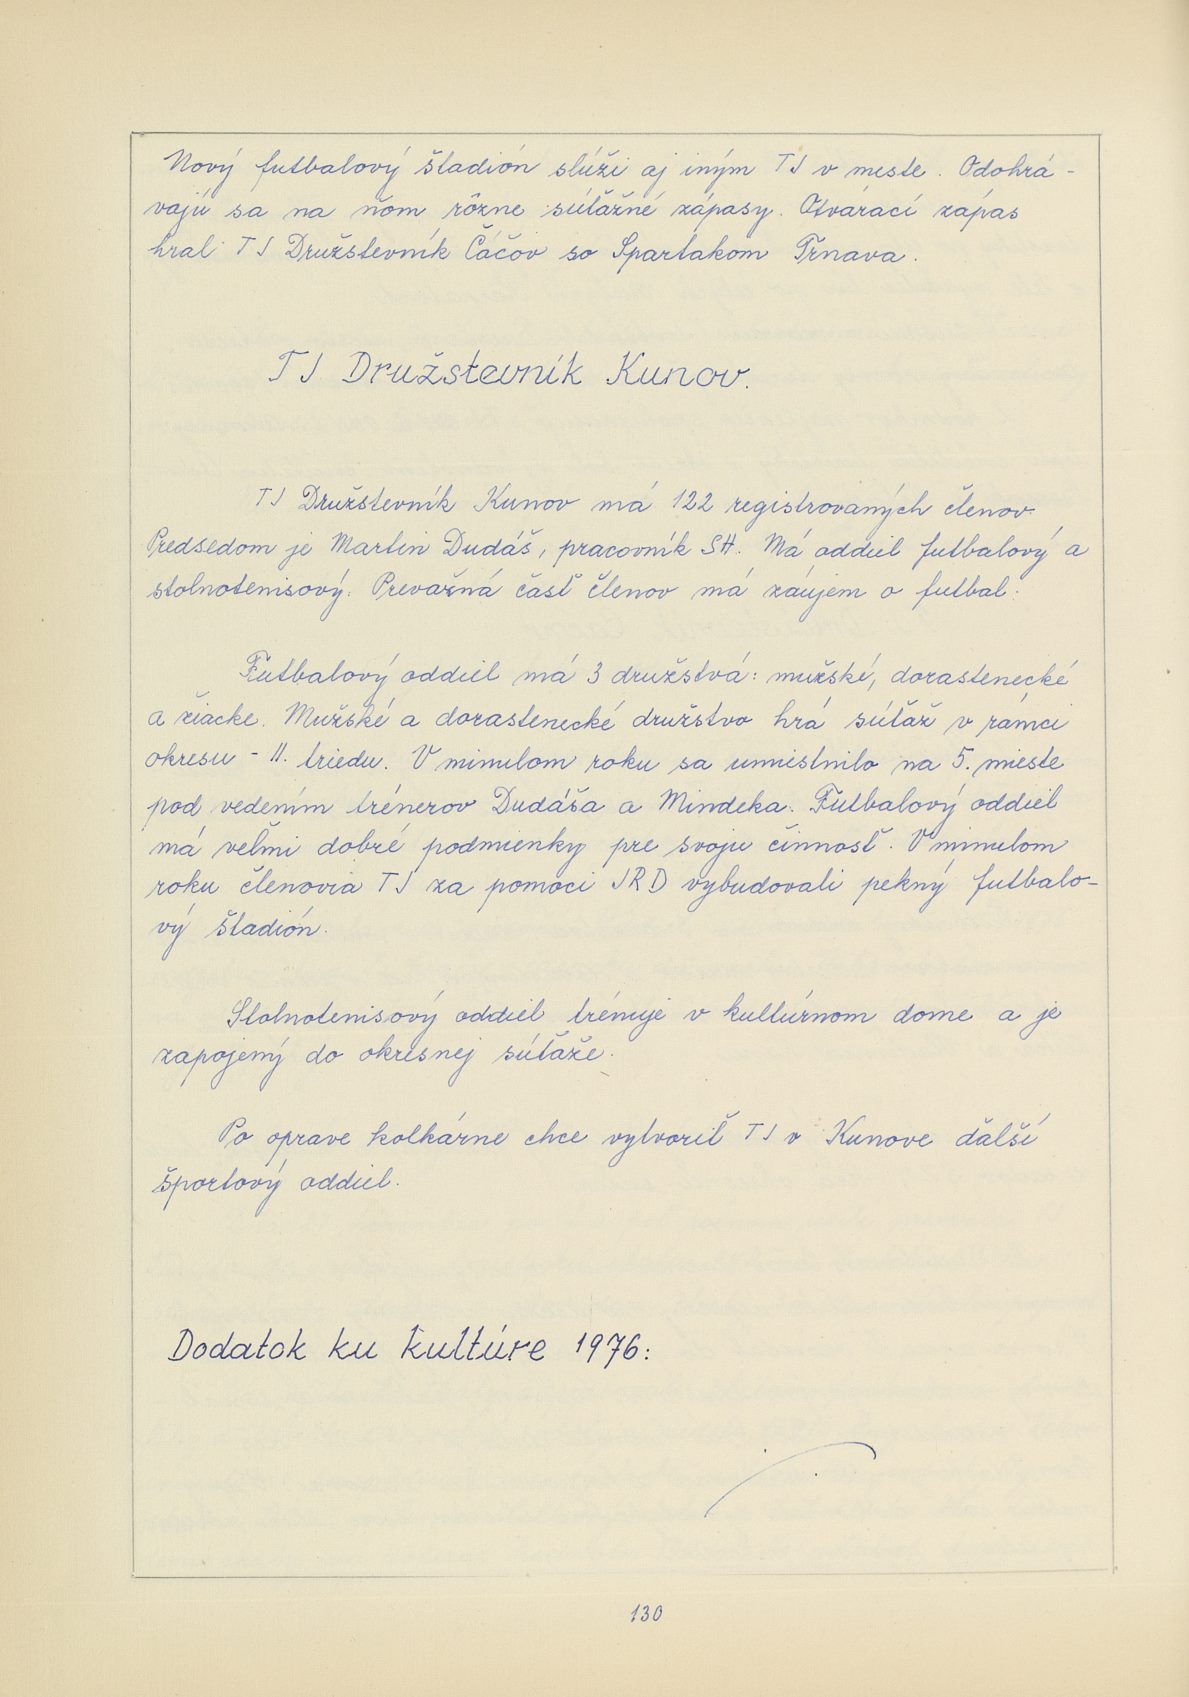 Nový futbalový štadión slúži aj iným TJ v meste. Odohrá-
vajú sa na ňom rôzne súťažné zápasy. Otvárací zápas
hral TJ Družstevník Čáčov so Spartakom Trnava.
TJ Družstevník Kunov.
TJ Družstevník Kunov má 122 registrovaných členov.
Predsedom je Martin Dudáš, pracovník SH. Má oddiel futbalový a
stolnotenisový. Prevažná časť členov má záujem o futbal.
Futbalový oddiel má 3 družstvá: mužské, dorastenecké
a žiacke. Mužské a dorastenecké družstvo hrá súťaž v rámci
okresu - II. triedu. V minulom roku sa umiestnilo na 5. mieste
pod vedením trénerov Dudáša a Mindeka. Futbalový oddiel
má veľmi dobré podmienky pre svoju činnosť. V minulom
roku členovia TJ za pomoci JRD vybudovali pekný futbalo-
vý štadión.
Stolnotenisový oddiel trénuje v kultúrnom dome a je
zapojený do okresnej súťaže.
Po oprave kolkárne chce vytvoriť TJ v Kunove ďalší
športový oddiel.
Dodatok ku kultúre 1976:
130